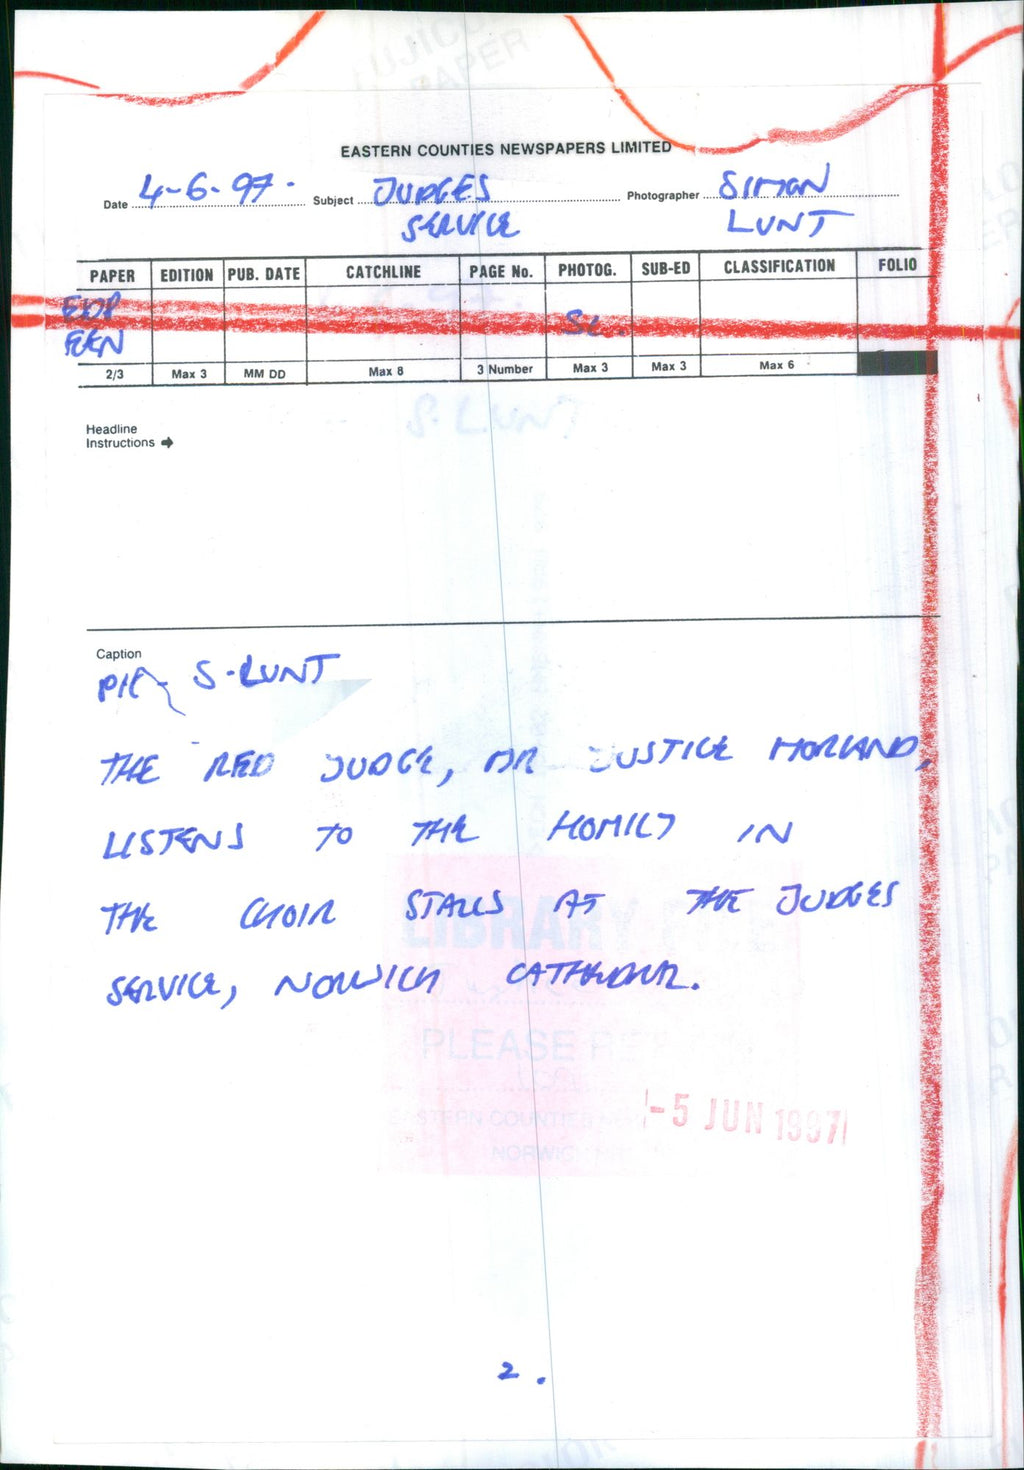 EASTERN COUNTIES NEWSPAPERS LIMITED
Date 4-6-97. Subject JUDGES Photographer SIMON
SERVICE LUNT
PAPER EDITION PUB. DATE CATCHLINE PAGE No. PHOTOG. SUB-ED CLASSIFICATION FOLIO
EDP SL.
EEN
2/3 Max 3 MM DD Max 8 3 Number Max 3 Max 3 Max 6
S. LUNT
Headline
Instructions
Caption
PIC - S-LUNT
THE RED JUDGE, MR JUSTICE MORLAND,
LISTENS TO THE HOMILY IN
THE CHOIR STALLS AT THE JUDGES
SERVICE, NORWICH CATHEDRAL.
LIBRARY
PLEASE
-5 JUN 1997
EASTERN COUNTIES
NORWICH
2.